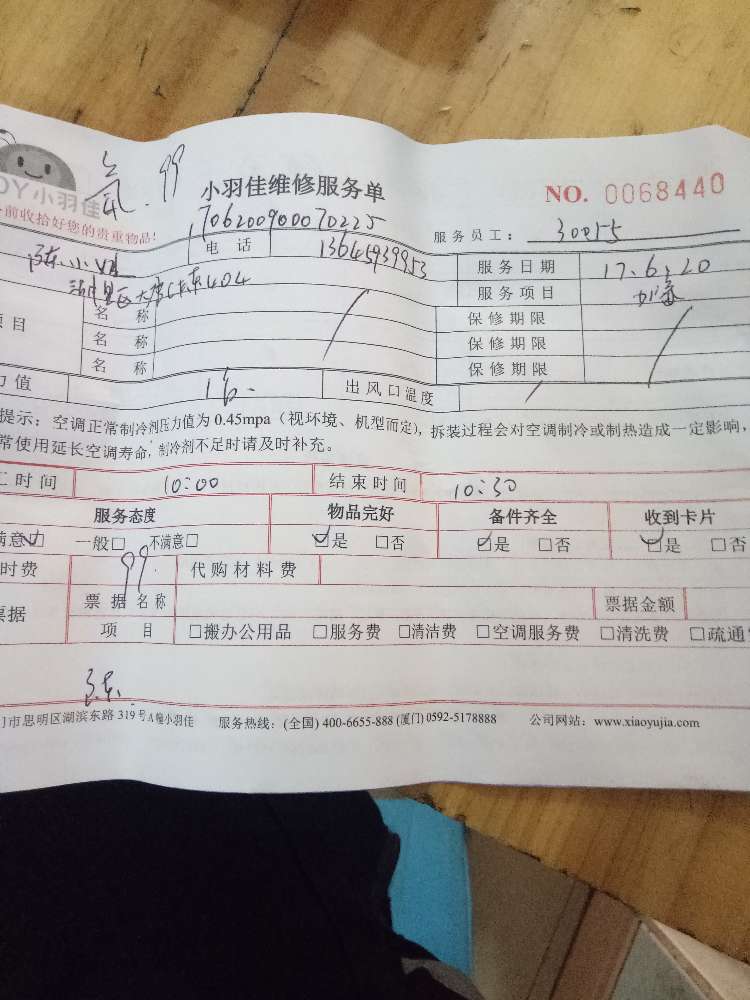 氧.99
小羽佳维修服务单
NO. 0068440
OY小羽佳
前收拾好您的贵重物品!
服务员工: 30055
电话 13645939953 服务日期 17.6.20
404 服务项目
项目 名称 保修期限
名称 保修期限
名称 保修期限
力值 16. 出风口温度
提示: 空调正常制冷剂压力值为 0.45mpa (视环境、机型而定), 拆装过程会对空调制冷或制热造成一定影响,
常使用延长空调寿命, 制冷剂不足时请及时补充。
工时间 10:00 结束时间 10:30
服务态度 物品完好 备件齐全 收到卡片
满意☑ 一般□ 不满意□ ☑是 □否 ☑是 □否 ☑是 □否
时费 99. 代购材料费
票据 票据名称 票据金额
项目 □搬办公用品 □服务费 □清洁费 □空调服务费 □清洗费 □疏通
门市思明区湖滨东路 319 号A幢小羽佳 服务热线: (全国) 400-6655-888 (厦门) 0592-5178888 公司网站: www.xiaoyujia.com